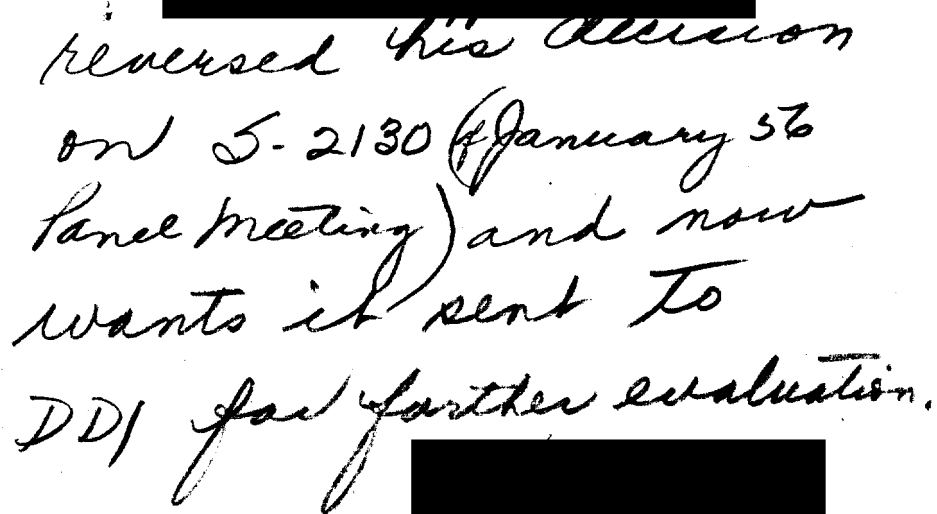 reversed his decision
on S-2130 (4 January 56
Panel Meeting) and now
wants it sent to
DDI for further evaluation.